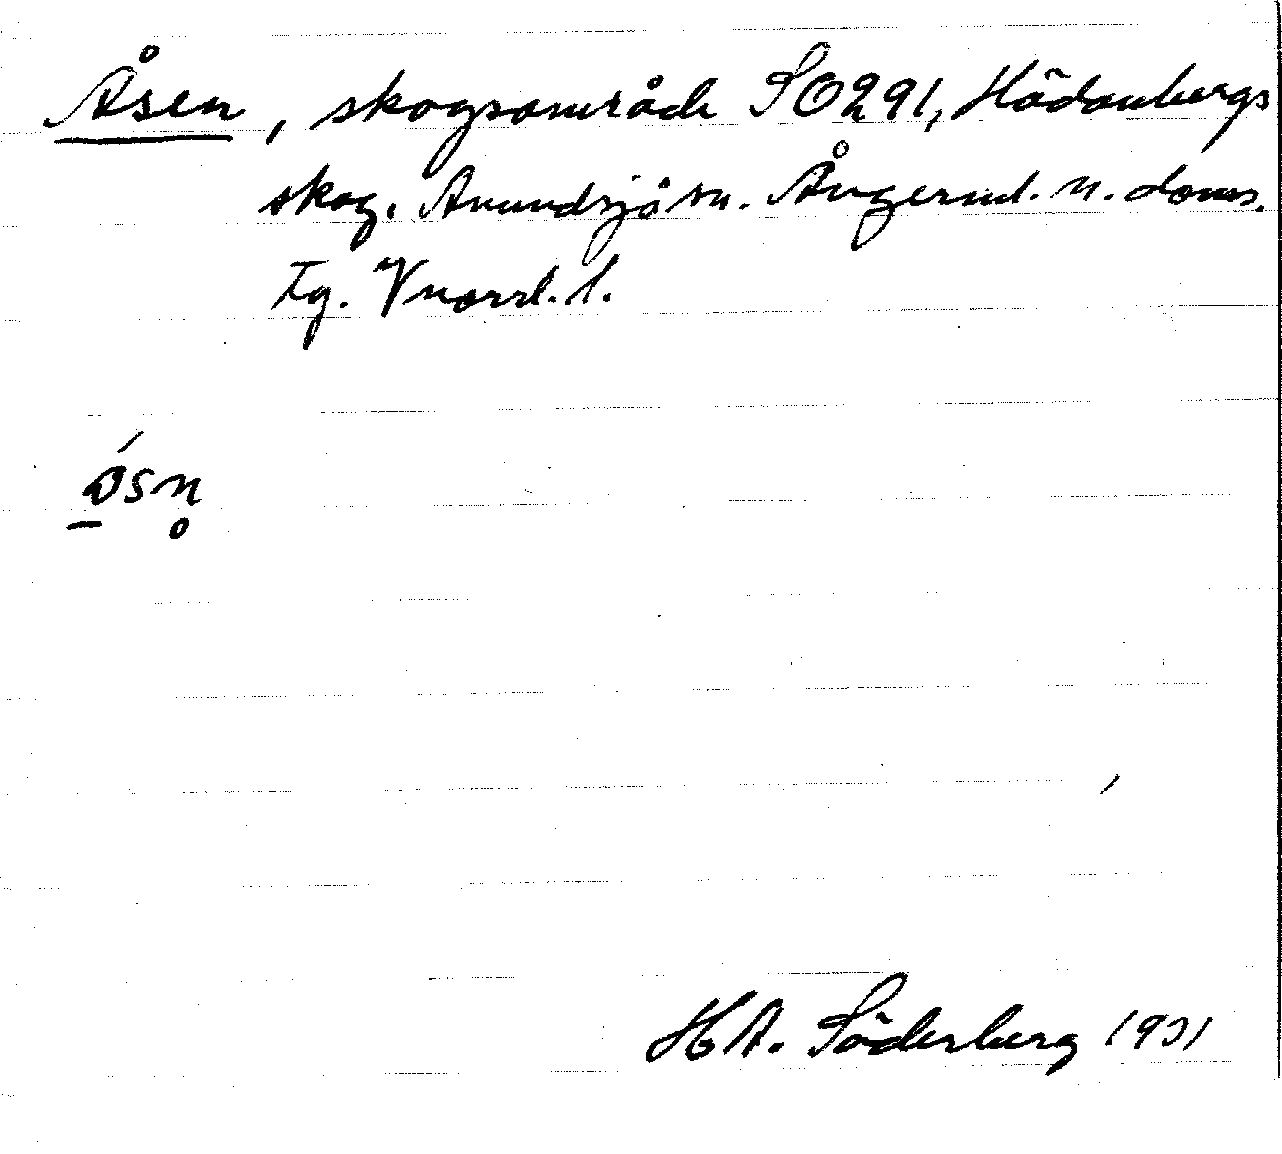 Åsen, skogsområde SO291, Hädanbergs
skog. Anundsjö sn. Ångerml. n. doms.
tg. Vnorrl. l.
H A. Söderberg 1931